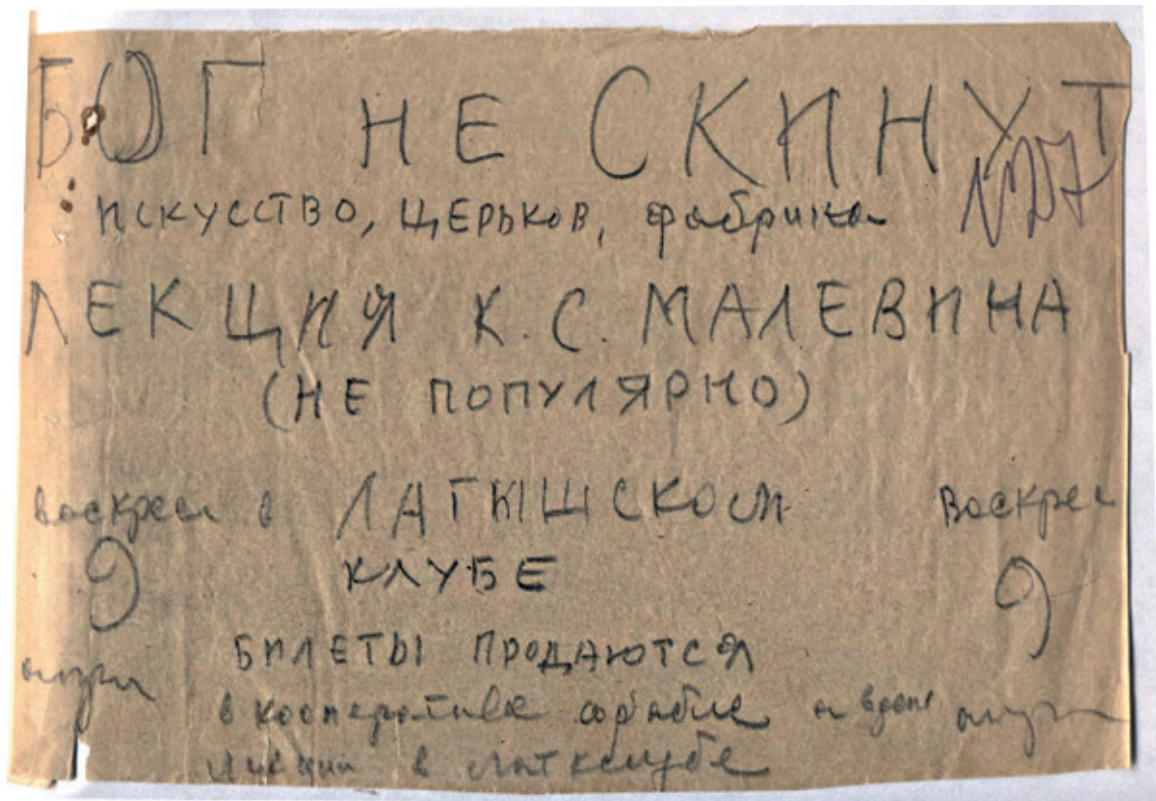 БОГ НЕ СКИНУТ
№27
ИСКУССТВО, ЦЕРЬКОВ, фабрика
ЛЕКЦИЯ К.С. МАЛЕВИЧА
(НЕ ПОПУЛЯРНО)
воскрес в ЛАТЫШСКОМ Воскрес
9 КЛУБЕ 9
БИЛЕТЫ ПРОДАЮТСЯ
в кооперативе и в день
лекции в латклубе